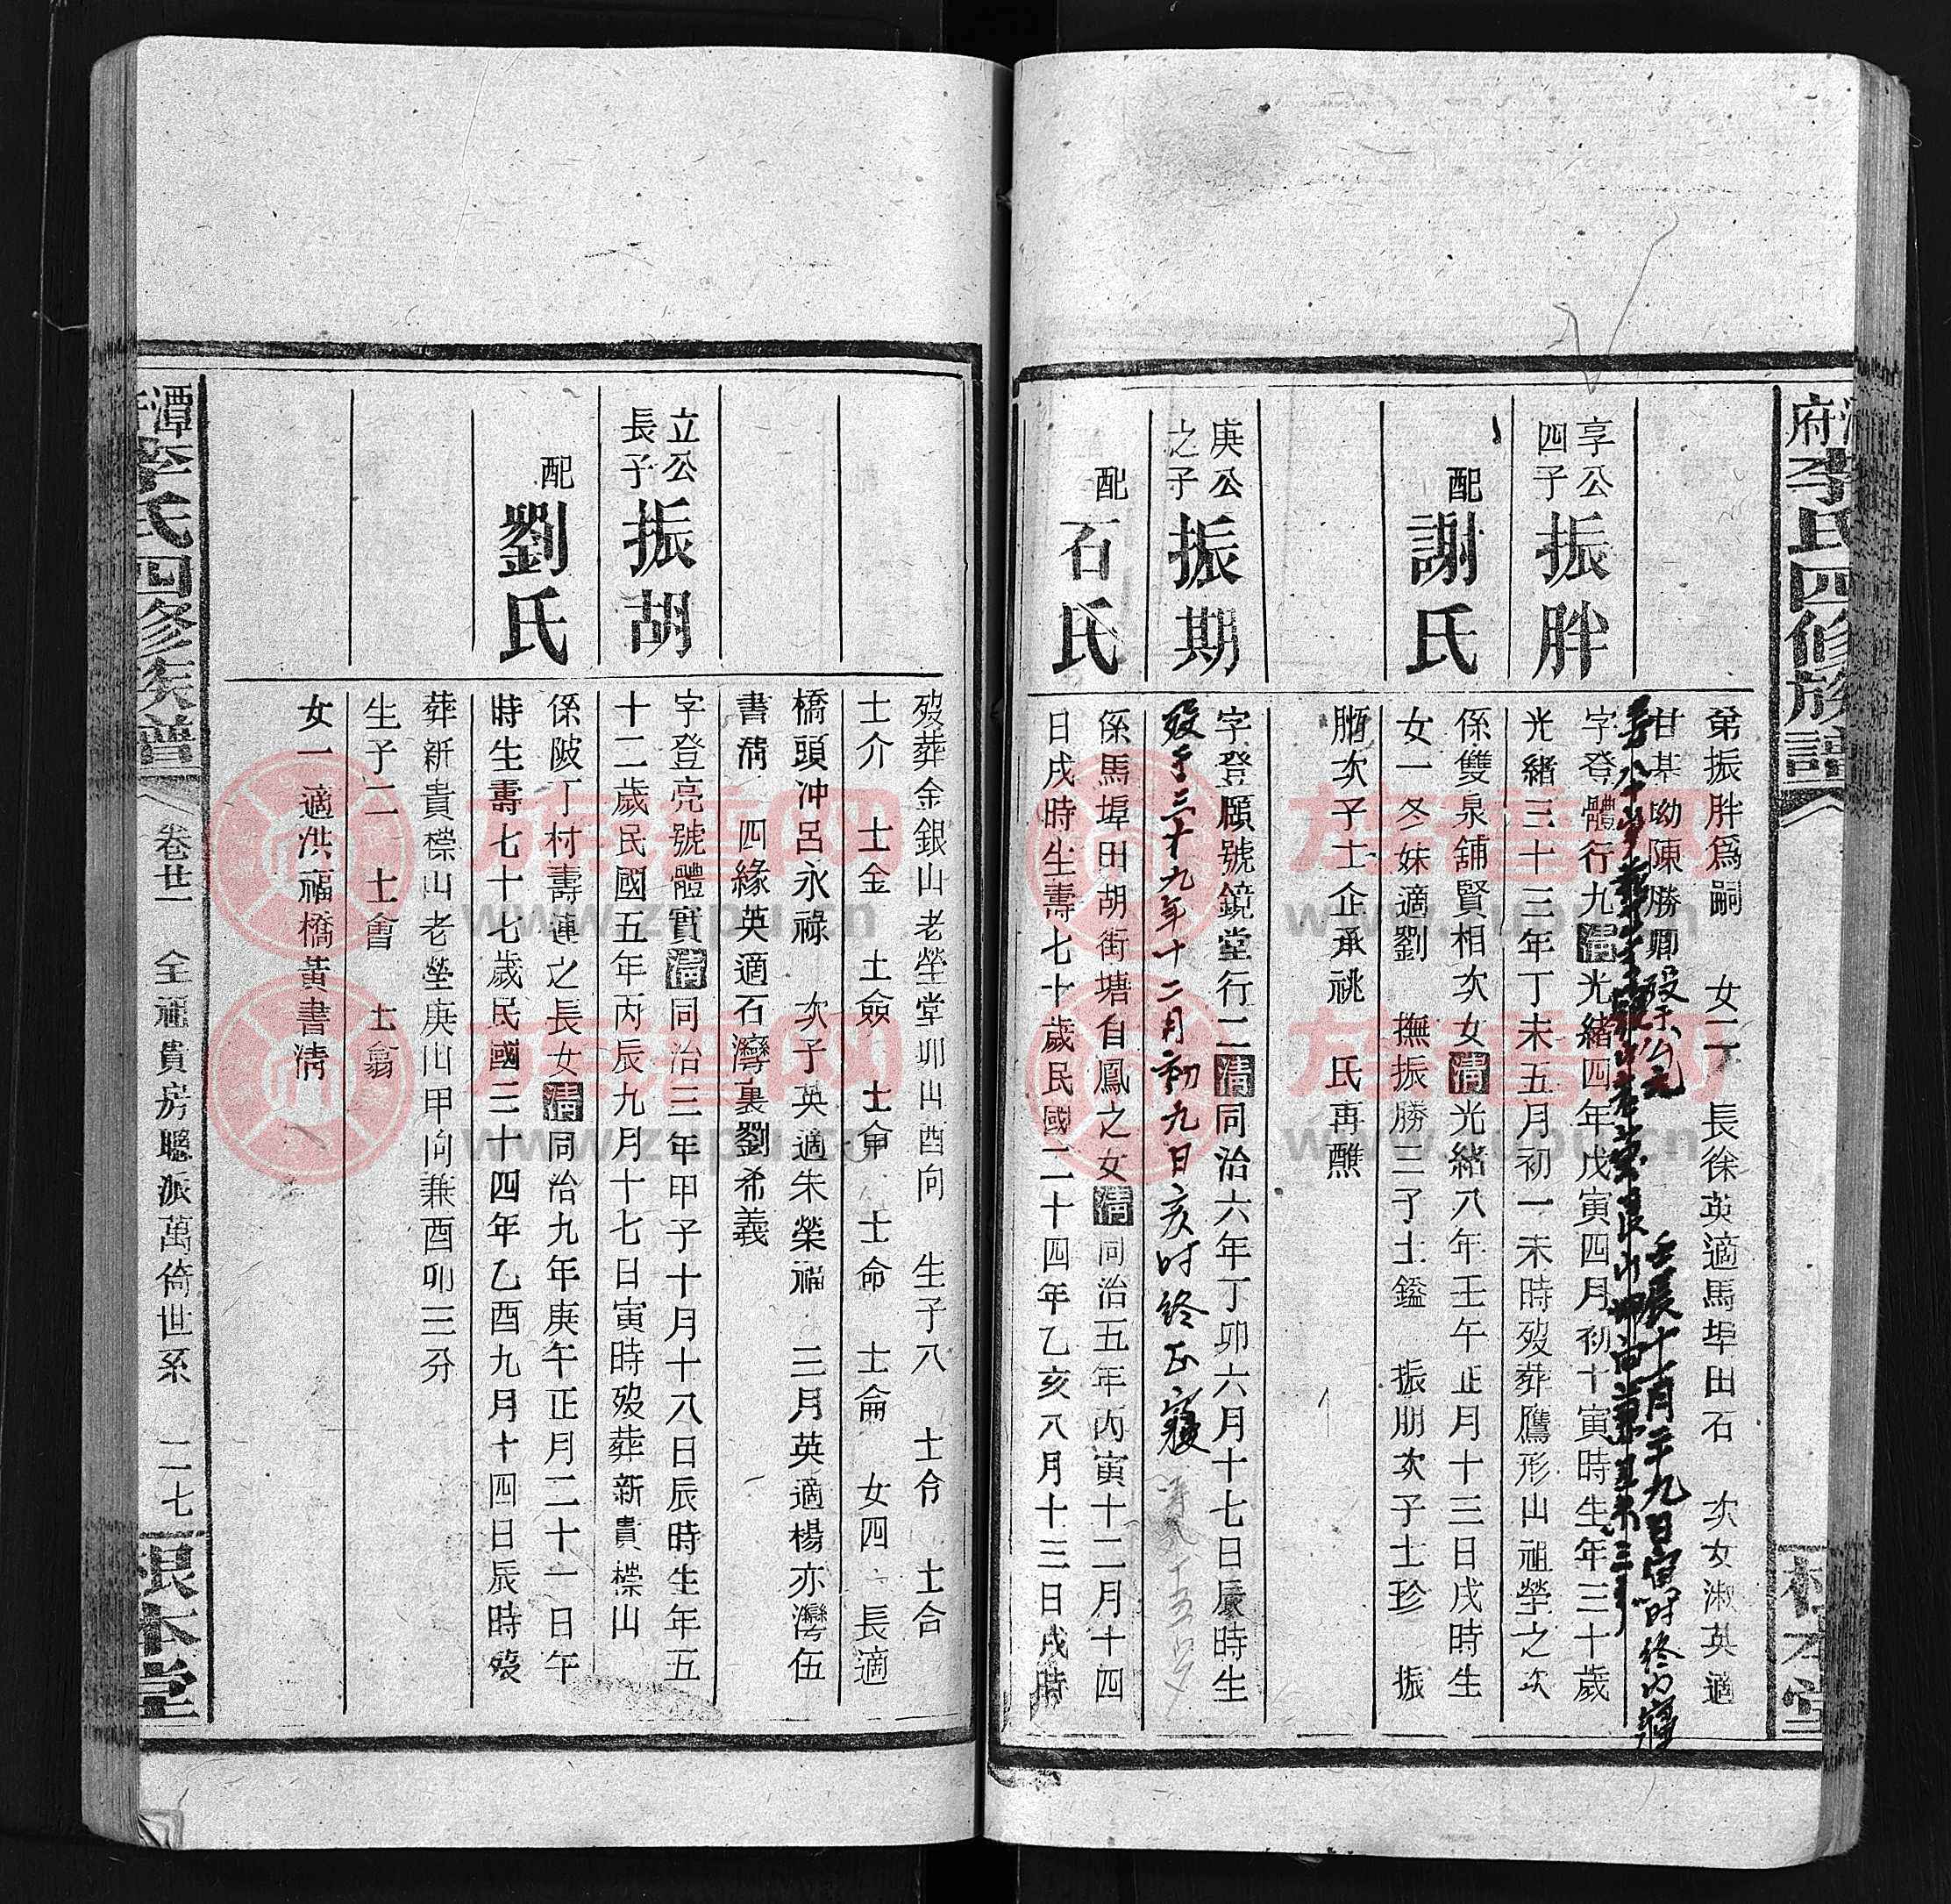 府李氏四修族譜
根本堂
弟振胖爲嗣 女二 長徐英適馬埠田石 次女淑英適
甘基坳陳勝卿
殁于公元
壬辰十一月二十九日寅时终内寢
享公四子 振胖
字登體行九清光緒四年戊寅四月初十寅時生年三十歲
光緒三十三年丁未五月初一未時殁葬鷹形山祖塋之次
配 謝氏
係雙泉舖賢相次女清光緒八年壬午正月十三日戌時生
女一冬妹適劉 撫振勝三子士鎰 振朋次子士珍 振
脜次子士企承祧 氏再醮
庚公之子 振期
字登願號鏡堂行二清同治六年丁卯六月十七日辰時生
殁于三十九年十二月初九日亥时终正寢
配 石氏
係馬埠田胡街塘自鳳之女清同治五年丙寅十二月十四
日戌時生壽七十歲民國二十四年乙亥八月十三日戌時
殁葬金銀山老塋堂卯山酉向 生子八 士份 士合
士介 士金 士僉 士侖 士命 士倫 女四 長適
橋頭沖呂永祿 次子英適朱榮福 三月英適楊亦灣伍
書清 四緣英適石灣裏劉希義
立公長子 振胡
字登亮號體實清同治三年甲子十月十八日辰時生年五
十二歲民國五年丙辰九月十七日寅時殁葬新貴檪山
配 劉氏
係陂丁村壽連之長女清同治九年庚午正月二十一日午
時生壽七十七歲民國三十四年乙酉九月十四日辰時殁
葬新貴檪山老塋庚山甲向兼酉卯三分
生子二 士會 士翕
女一適洪福橋黃書清
潭李氏四修族譜
卷廿一 全福貴房聰派萬倚世系 二七
根本堂
族譜网
www.zupu.cn
族譜网
www.zupu.cn
族譜网
www.zupu.cn
族譜网
www.zupu.cn